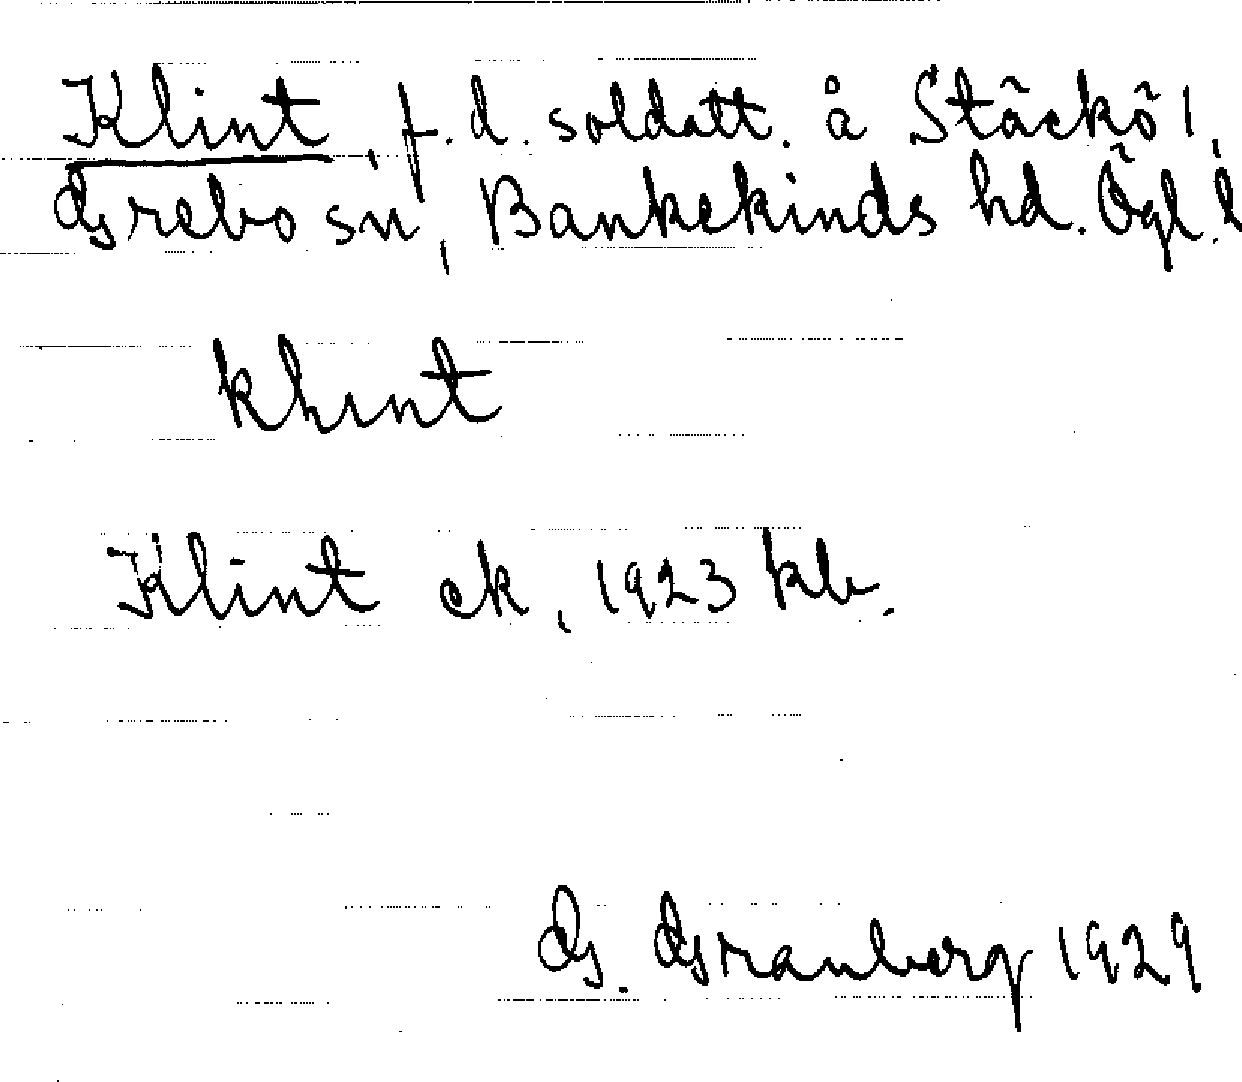 Klint, f.d. soldatt. å Stäckö 1,
Grebo sn, Bankekinds hd. Ögl. l
klint
Klint ek, 1923 kb.
G. Granberg 1929